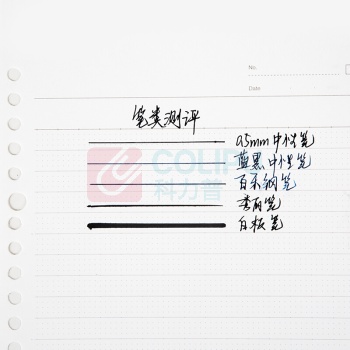 No.
Date
笔类测评
0.5mm 中性笔
蓝黑中性笔
百乐钢笔
秀丽笔
白板笔
COLIP
科力普